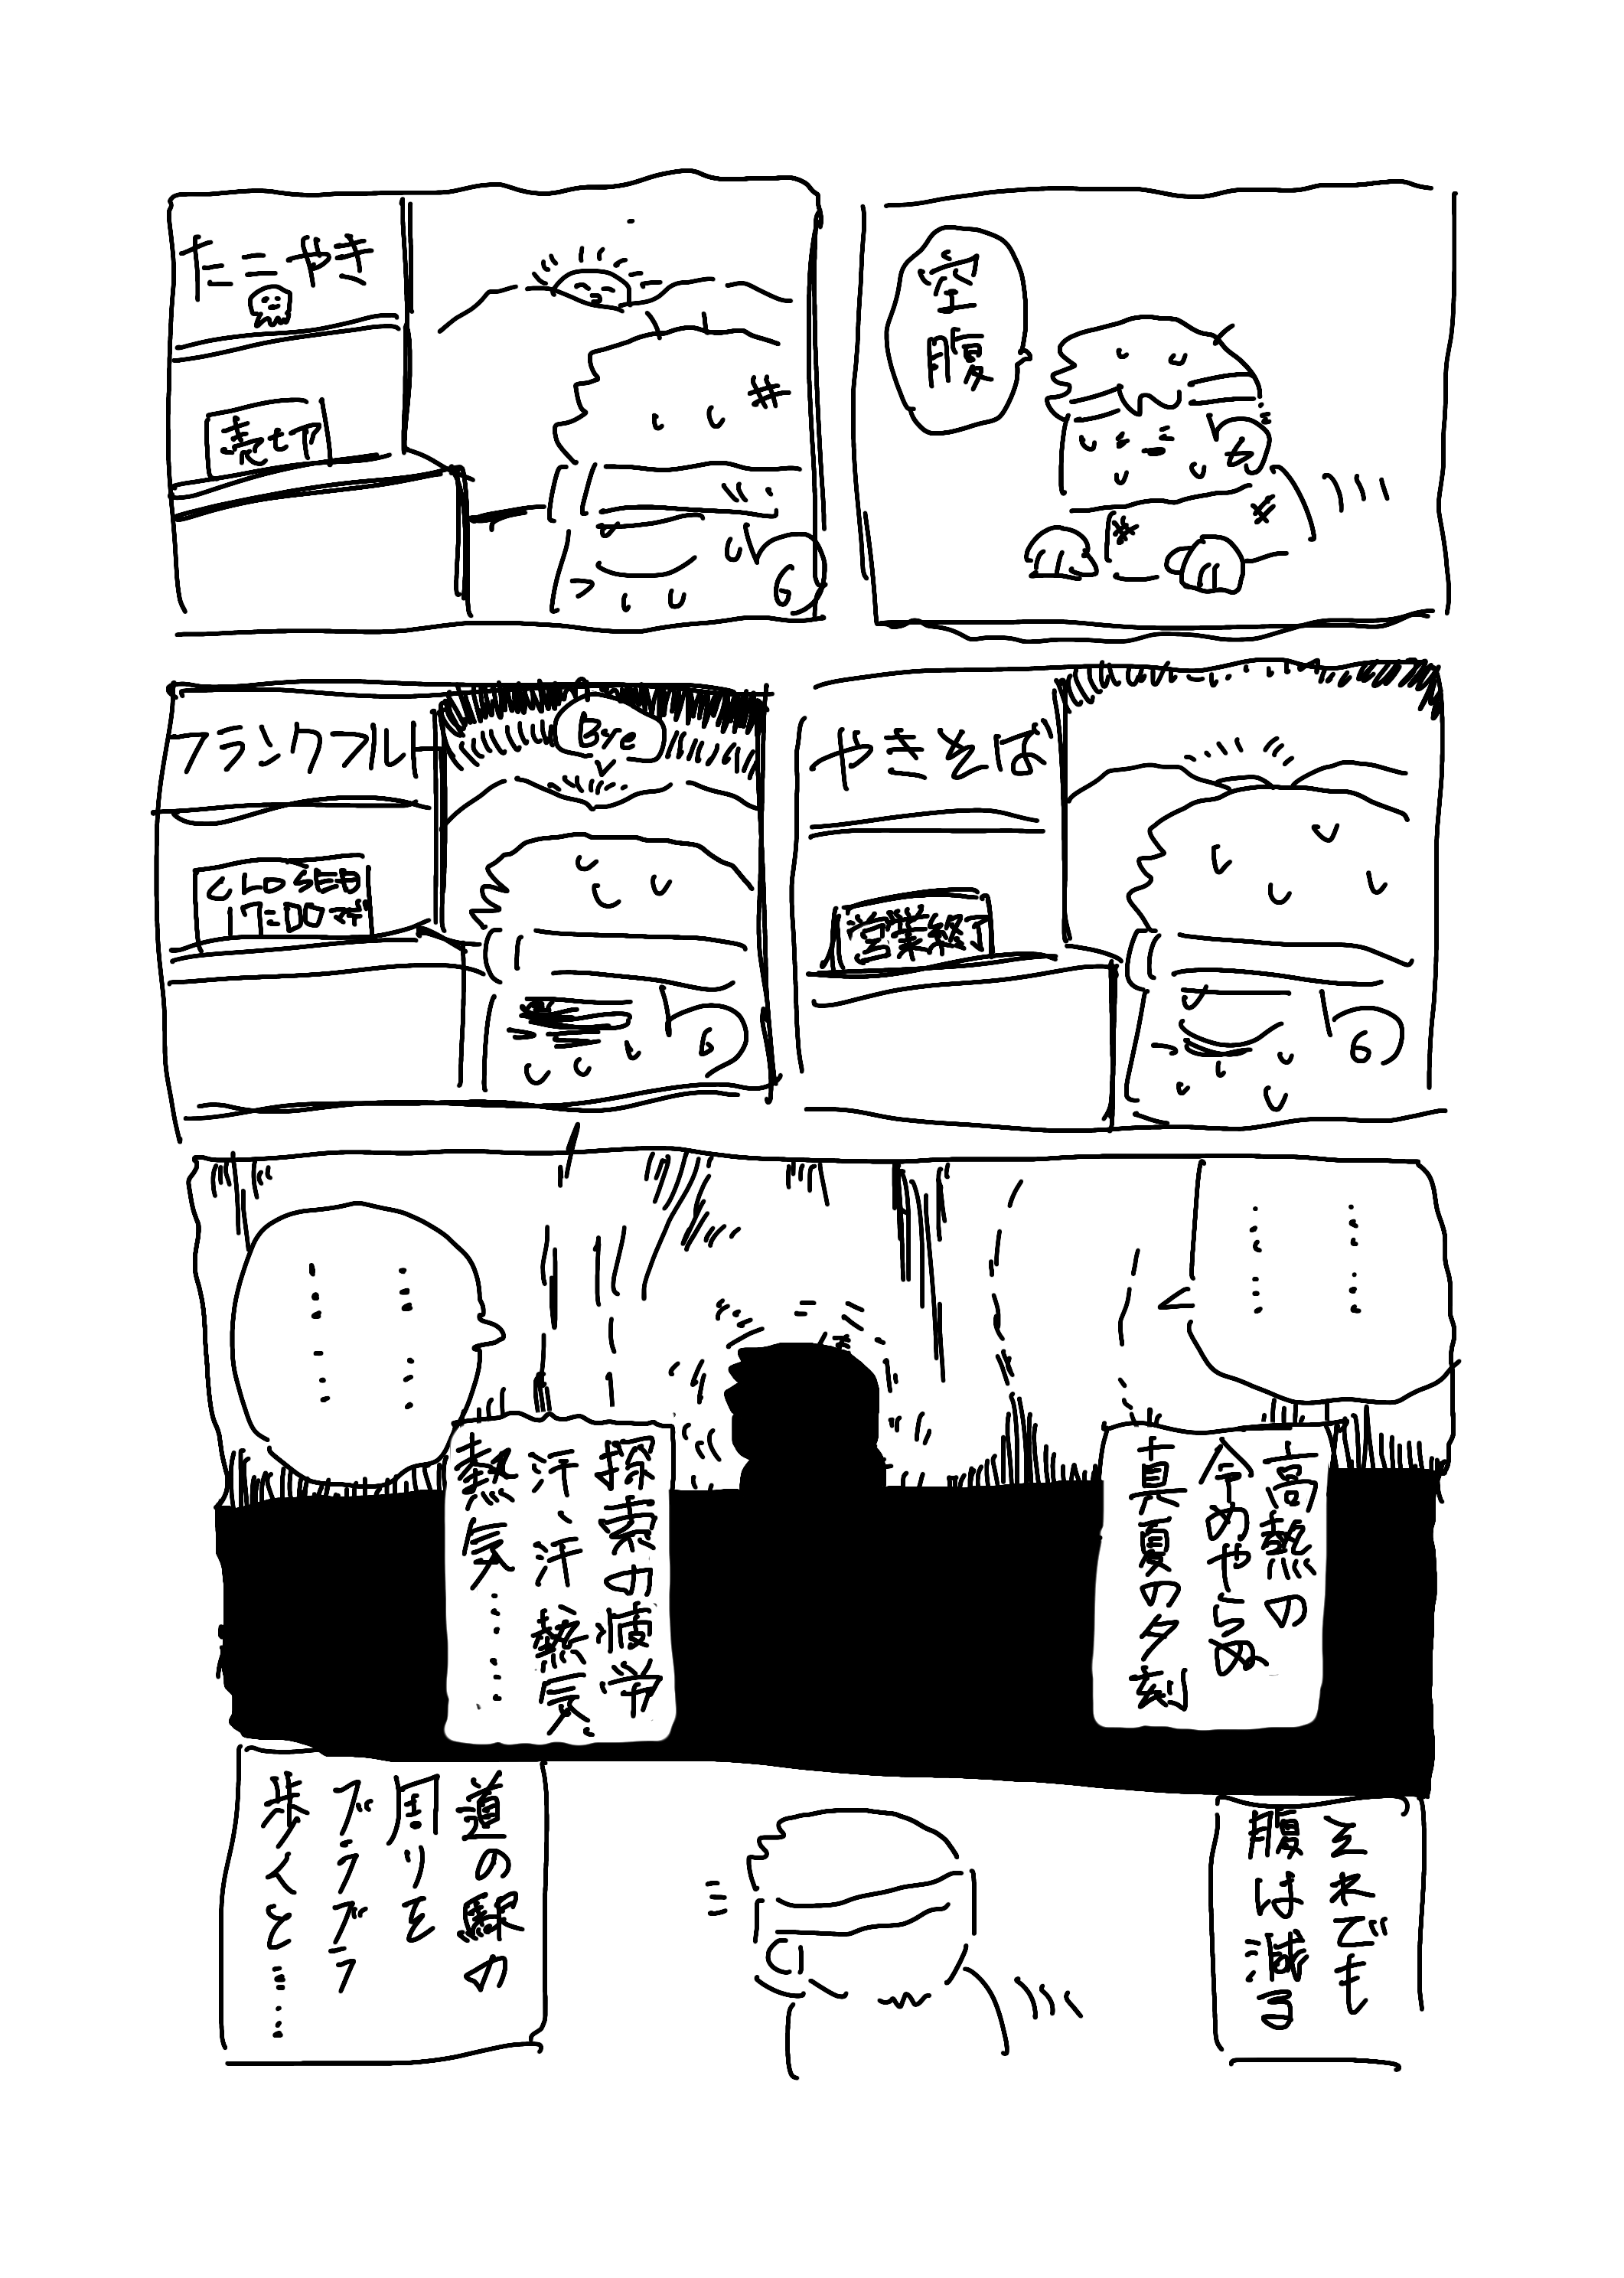 空
腹
たこやき
売切
やきそば
営業終了
フランクフルト
CLOSED
17:00マデ
Bye
…… 
……
高熱の
冷めやらぬ
真夏の夕刻
……
……
探索の疲労
汗、汗、熱気、
熱気……
それでも
腹は減る
道の駅の
周りを
ブラブラ
歩くと……